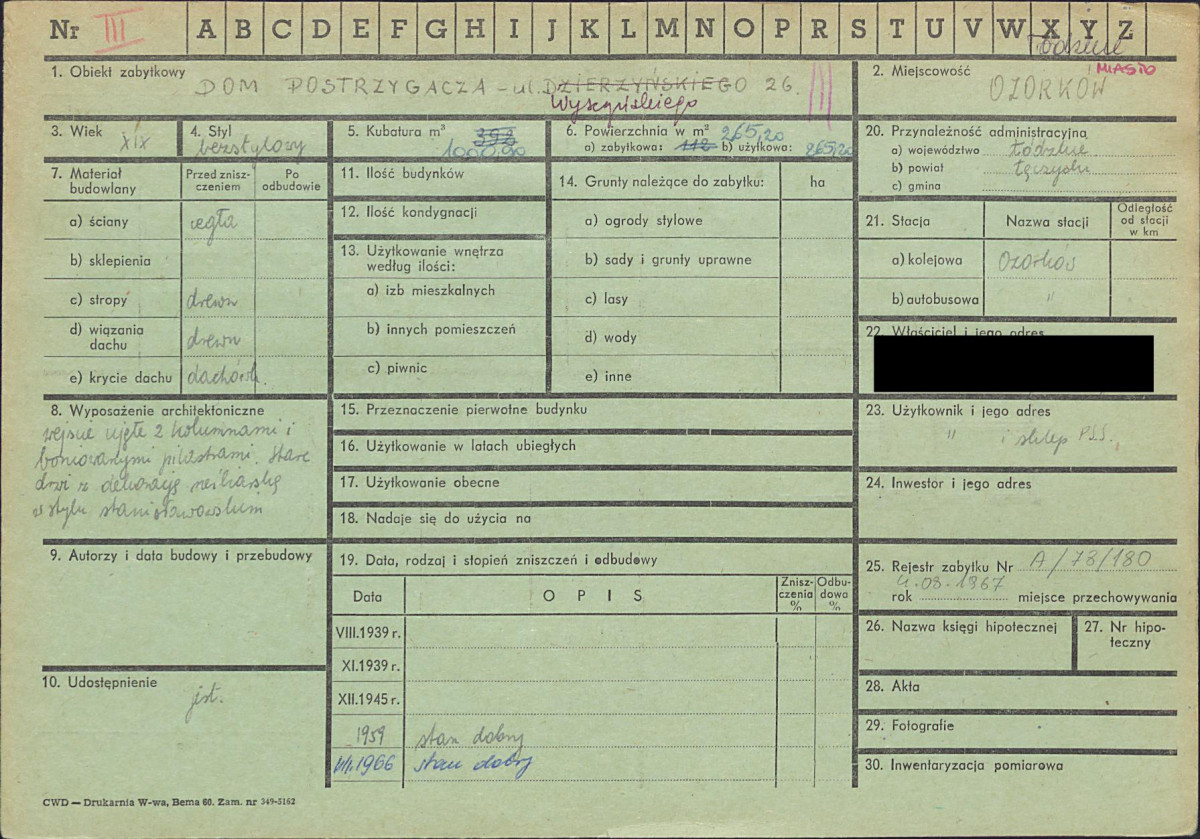 Nr III A B C D E F G H I J K L M N O P R S T U V W X Y Z
Łódzkie
1. Obiekt zabytkowy DOM POSTRZYGACZA - ul. DZIERZYŃSKIEGO 26. III
Wyszyńskiego
2. Miejscowość MIASTO
OZORKÓW
3. Wiek XIX
4. Styl bezstylowy
5. Kubatura m³ 392
1000.90
6. Powierzchnia w m² 265,20
a) zabytkowa: 112 b) użytkowa: 265,20
20. Przynależność administracyjna
a) województwo Łódzkie
b) powiat Łęczycki
c) gmina
7. Materiał budowlany
Przed zniszczeniem
Po odbudowie
a) ściany cegła
b) sklepienia
c) stropy drewn
d) wiązania dachu drewn
e) krycie dachu dachówk.
8. Wyposażenie architektoniczne
wejście ujęte 2 kolumnami i
boniowanymi pilastrami. Stare
drzwi z dekoracją snycerską
w stylu stanisławowskim
9. Autorzy i data budowy i przebudowy
10. Udostępnienie
jest.
11. Ilość budynków
12. Ilość kondygnacji
13. Użytkowanie wnętrza
według ilości:
a) izb mieszkalnych
b) innych pomieszczeń
c) piwnic
14. Grunty należące do zabytku: ha
a) ogrody stylowe
b) sady i grunty uprawne
c) lasy
d) wody
e) inne
15. Przeznaczenie pierwotne budynku
16. Użytkowanie w latach ubiegłych
17. Użytkowanie obecne
18. Nadaje się do użycia na
19. Data, rodzaj i stopień zniszczeń i odbudowy
Data O P I S Zniszczenia % Odbudowa %
VIII.1939 r.
XI.1939 r.
XII.1945 r.
1959 stan dobry
VII.1966 stan dobry
21. Stacja Nazwa stacji Odległość od stacji w km
a) kolejowa Ozorków
b) autobusowa "
22. Właściciel i jego adres
23. Użytkownik i jego adres
" i sklep PSS.
24. Inwestor i jego adres
25. Rejestr zabytku Nr A/78/180
4.08.1967
rok miejsce przechowywania
26. Nazwa księgi hipotecznej
27. Nr hipoteczny
28. Akta
29. Fotografie
30. Inwentaryzacja pomiarowa
CWD — Drukarnia W-wa, Bema 60. Zam. nr 349-5162